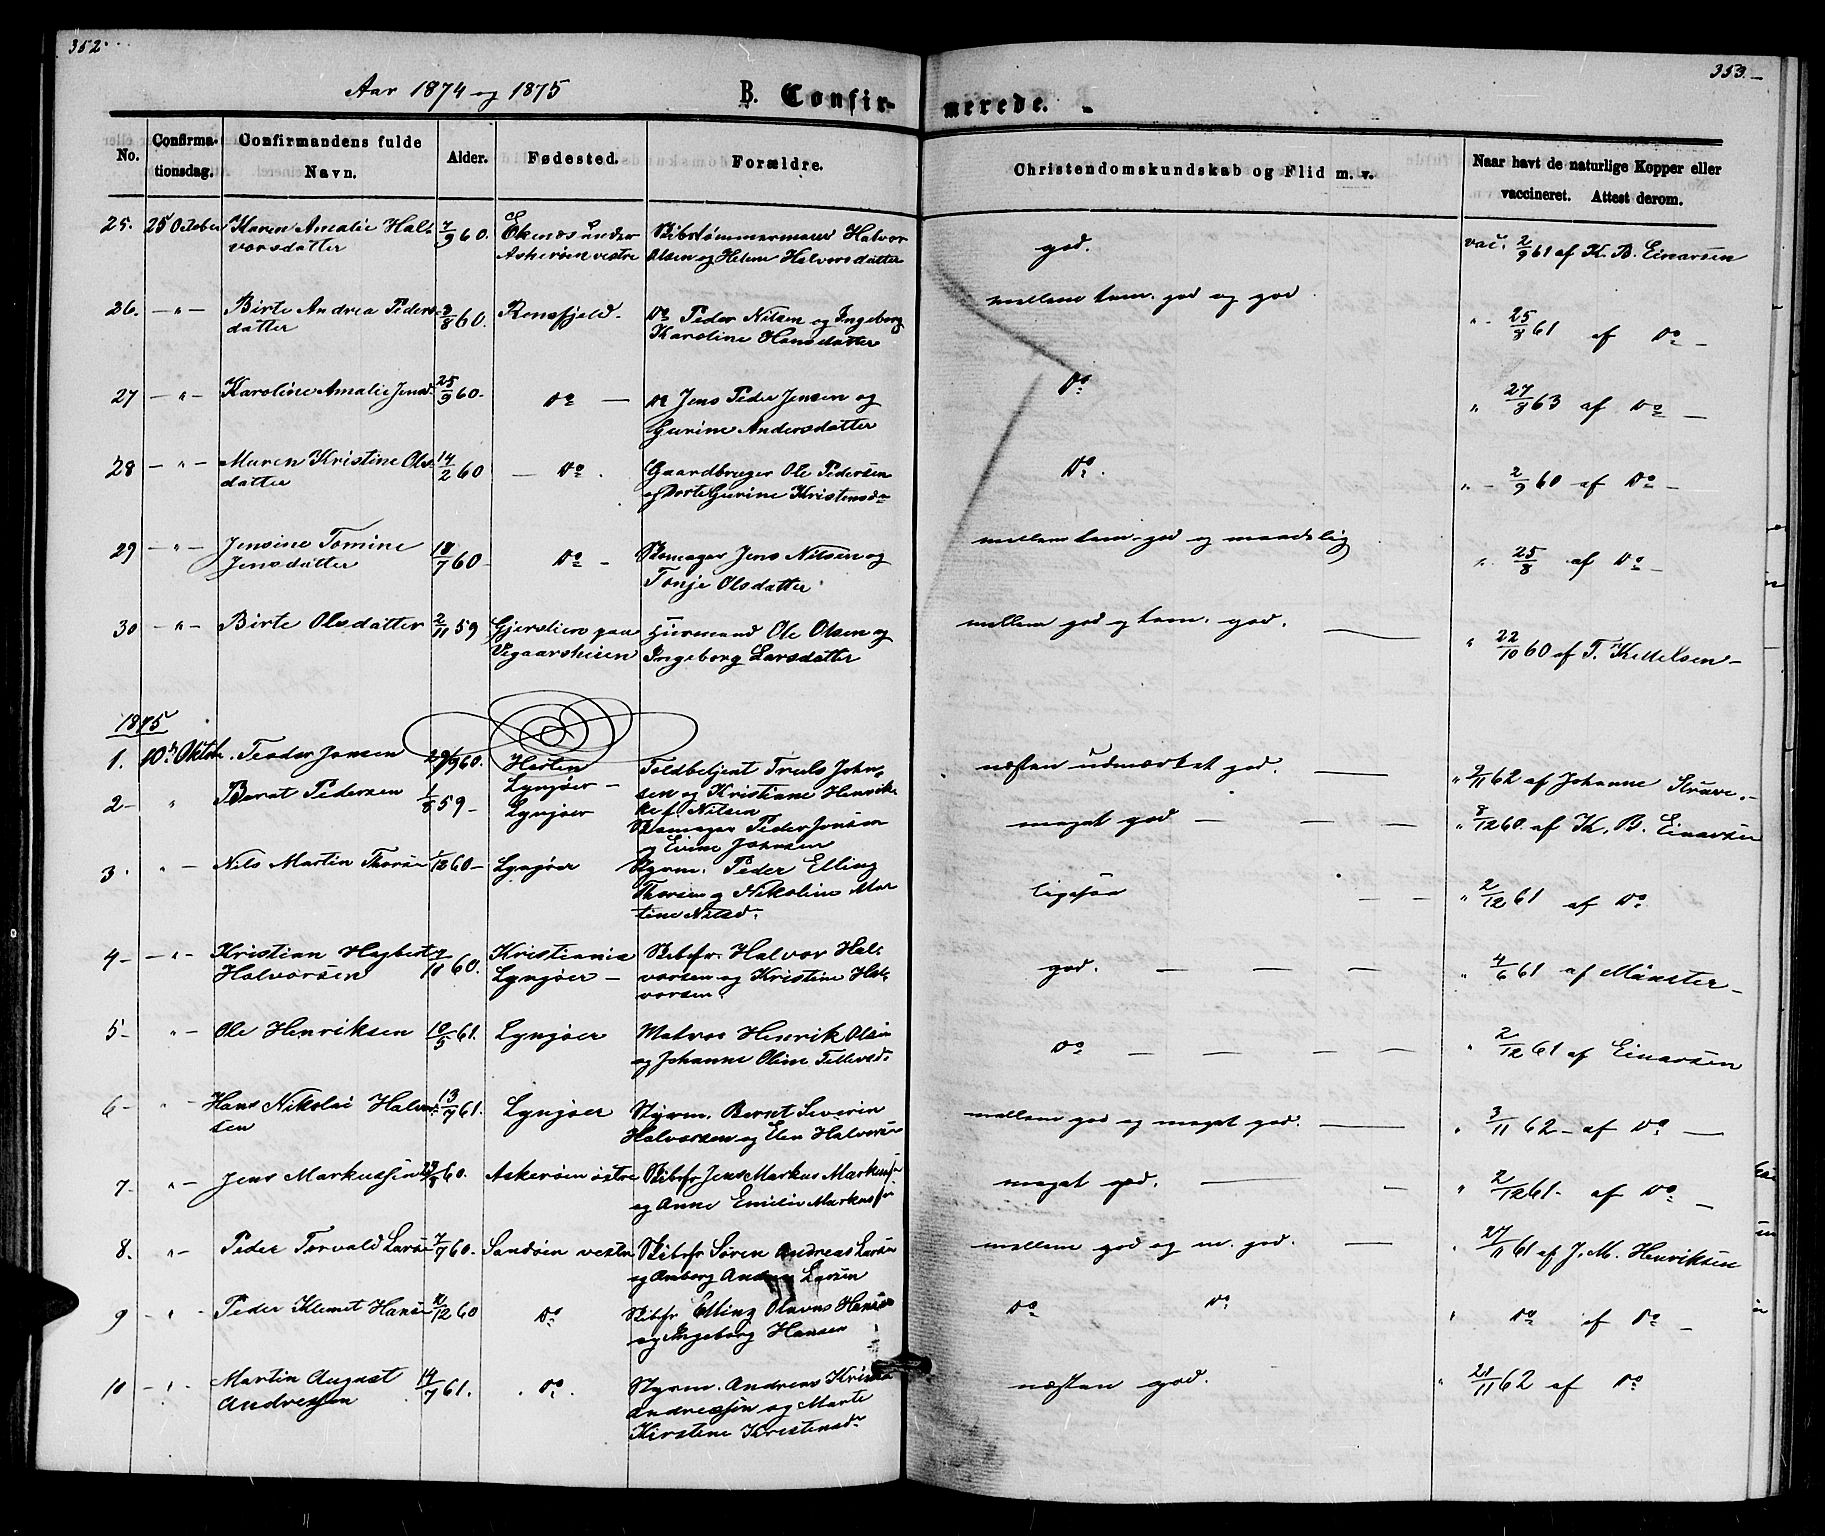 352.
353.
Aar 1874 og 1875
B. Confirmerede.
No. Confirmationsdag. Confirmandens fulde Navn. Alder. Fødested. Forældre. Christendomskundskab og Flid m. v. Naar havt de naturlige Kopper eller vaccineret. Attest derom.
25. 25 October Karen Amalie Hal- 7/9 60. Ekenes under Skibstømmermand Halvor god. vac. 2/9 61 af K. B. Einarsen
vorsdatter Askerøen vestre Olsen og Helene Halvorsdatter
26. — " — Birte Andrea Peders- 3/8 60. Ronsfjeld. Do Peder Nilsen og Ingeborg mellem tem. god og god " 25/8 61 af Do —
datter Karoline Hansdatter
27 — " — Karoline Amalie Jensd. 25/9 60. Do — Do Jens Peder Jensen og Do " 27/8 63 af Do —
Gurine Andersdatter
28 — " — Maren Kristine Ols- 14/2 60 — Do. Gaardbruger Ole Pedersen Do. " — 2/9 60 af Do —
datter og Dorte Gurine Kristensdr
29 — " — Jensine Tomine 18/7 60 Do — Skomager Jens Nilsen og mellem tem. god og maadelig " 25/8 af Do —
Jensdatter Tonje Olsdatter
30 — " — Birte Olsdatter 2/11 59 Gjerstien paa Huusmand Ole Olsen og mellem god og tem. god. " 22/10 60 af T. Kettelsen —
Vegaarsheien Ingeborg Larsdatter
1875
1. 10de Oktob. Teodor Jonsen 29/9 60. Hesten Toldbetjent Truls John- næsten udmærket god. " 2/11 62 af Johanne Struve.
Lyngøer — sen og Kristiane Henrik-
2 — " Berat Pedersen 1/8 59 — Lyngøer ke f. Nilsen meget god — " 8/12 60. af K. B. Einarsen
Skomager Peder Jensen
og Evine Johnsen
3. " — Nils Martin Thorsen 1/12 60 — Lyngøer Styrm. Peder Elling ligesaa " 2/12 61 af Do
Thorsen og Nikoline Mar
tine Nilsd.
4 — — " — Kristian Hagbert 60. Kristiania Skibsfr. Halvor Hal- god. " 4/6 61 af Münster —
Halvorsen Lyngøer — vorsen og Kristine Hal-
vorsen.
5 — " — Ole Henriksen 10/5 61. Lyngøer Matros Henrik Olsen Do " 2/12 61 af Einarsen
og Johanne Oline Tellevsd.
6 — " — Hans Nikolai Halvor- 13/9 61. Lyngøer Styrm. Bernt Severin mellem god og meget god. " 3/11 62 — af Do —
sen Halvorsen og Elen Halvorsen
7 — " — Jens Markussen 60. Askerøen østre Skibsfr Jens Markus Markussen meget god. " 2/12 61 — af Do —
og Anne Emilie Markussen
8. " — Peder Torvald Larsen 7/7 60. Sandøen vestre Skibsfr Søren Andreas Larsen mellem god og m. god. " 27/11 61 af J. M. Henriksen
og Amborg Andrea Larsen
9 — " Peder Klemet Hansen 2/12 60 Do Skibsfr Elling Olavus Hansen Do Do " Do af Do —
og Ingeborg Hansen
10 — " — Martin August 14/7 61. Do. Styrm. Andreas Kristen næsten god. " 21/11 62 af Do
Andressen Andressen og Marte
Kirstene Kristensdr